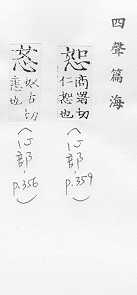 四聲篇海
恕 商署切 仁恕也
(心部, p.359)
惹 奴古切 惹也
(心部, p.356)